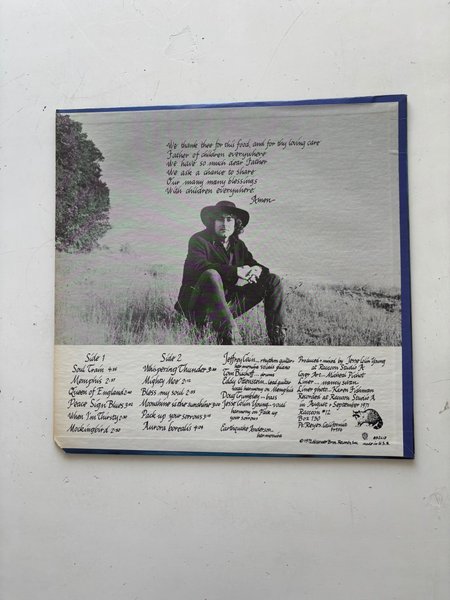 We thank thee for this food, and for thy loving care
Father of children everywhere
We have so much dear Father
We ask a chance to share
Our many many blessings
With children everywhere
Amen
Side 1
Soul Train
Memphis 2:37
Queen of England 2:00
Peace Sign Blues
When I'm Thirsty
Mockingbird
Side 2
Whispering Thunder
Mighty Moe
Bless my soul
Moonshine is the sunshine
Pack up your sorrows
Aurora borealis
Jeffrey Cain rhythm guitar
harmonica vocals piano
Eddy Ottenstein lead guitar
harmonica on Memphis
Doug Grumpsey bass
Jesse Colin Young vocal
harmony in Pack up
your sorrows
Earthquake Anderson
harmonica
Produced & mixed by Jesse Colin Young
at Raccoon Studio A
Cover Art Michael
Liner photo Karen
Recorded at Raccoon Studio A
in August & September 1971
Raccoon #12
Box 130
Pt. Reyes, California
Made in U.S.A.